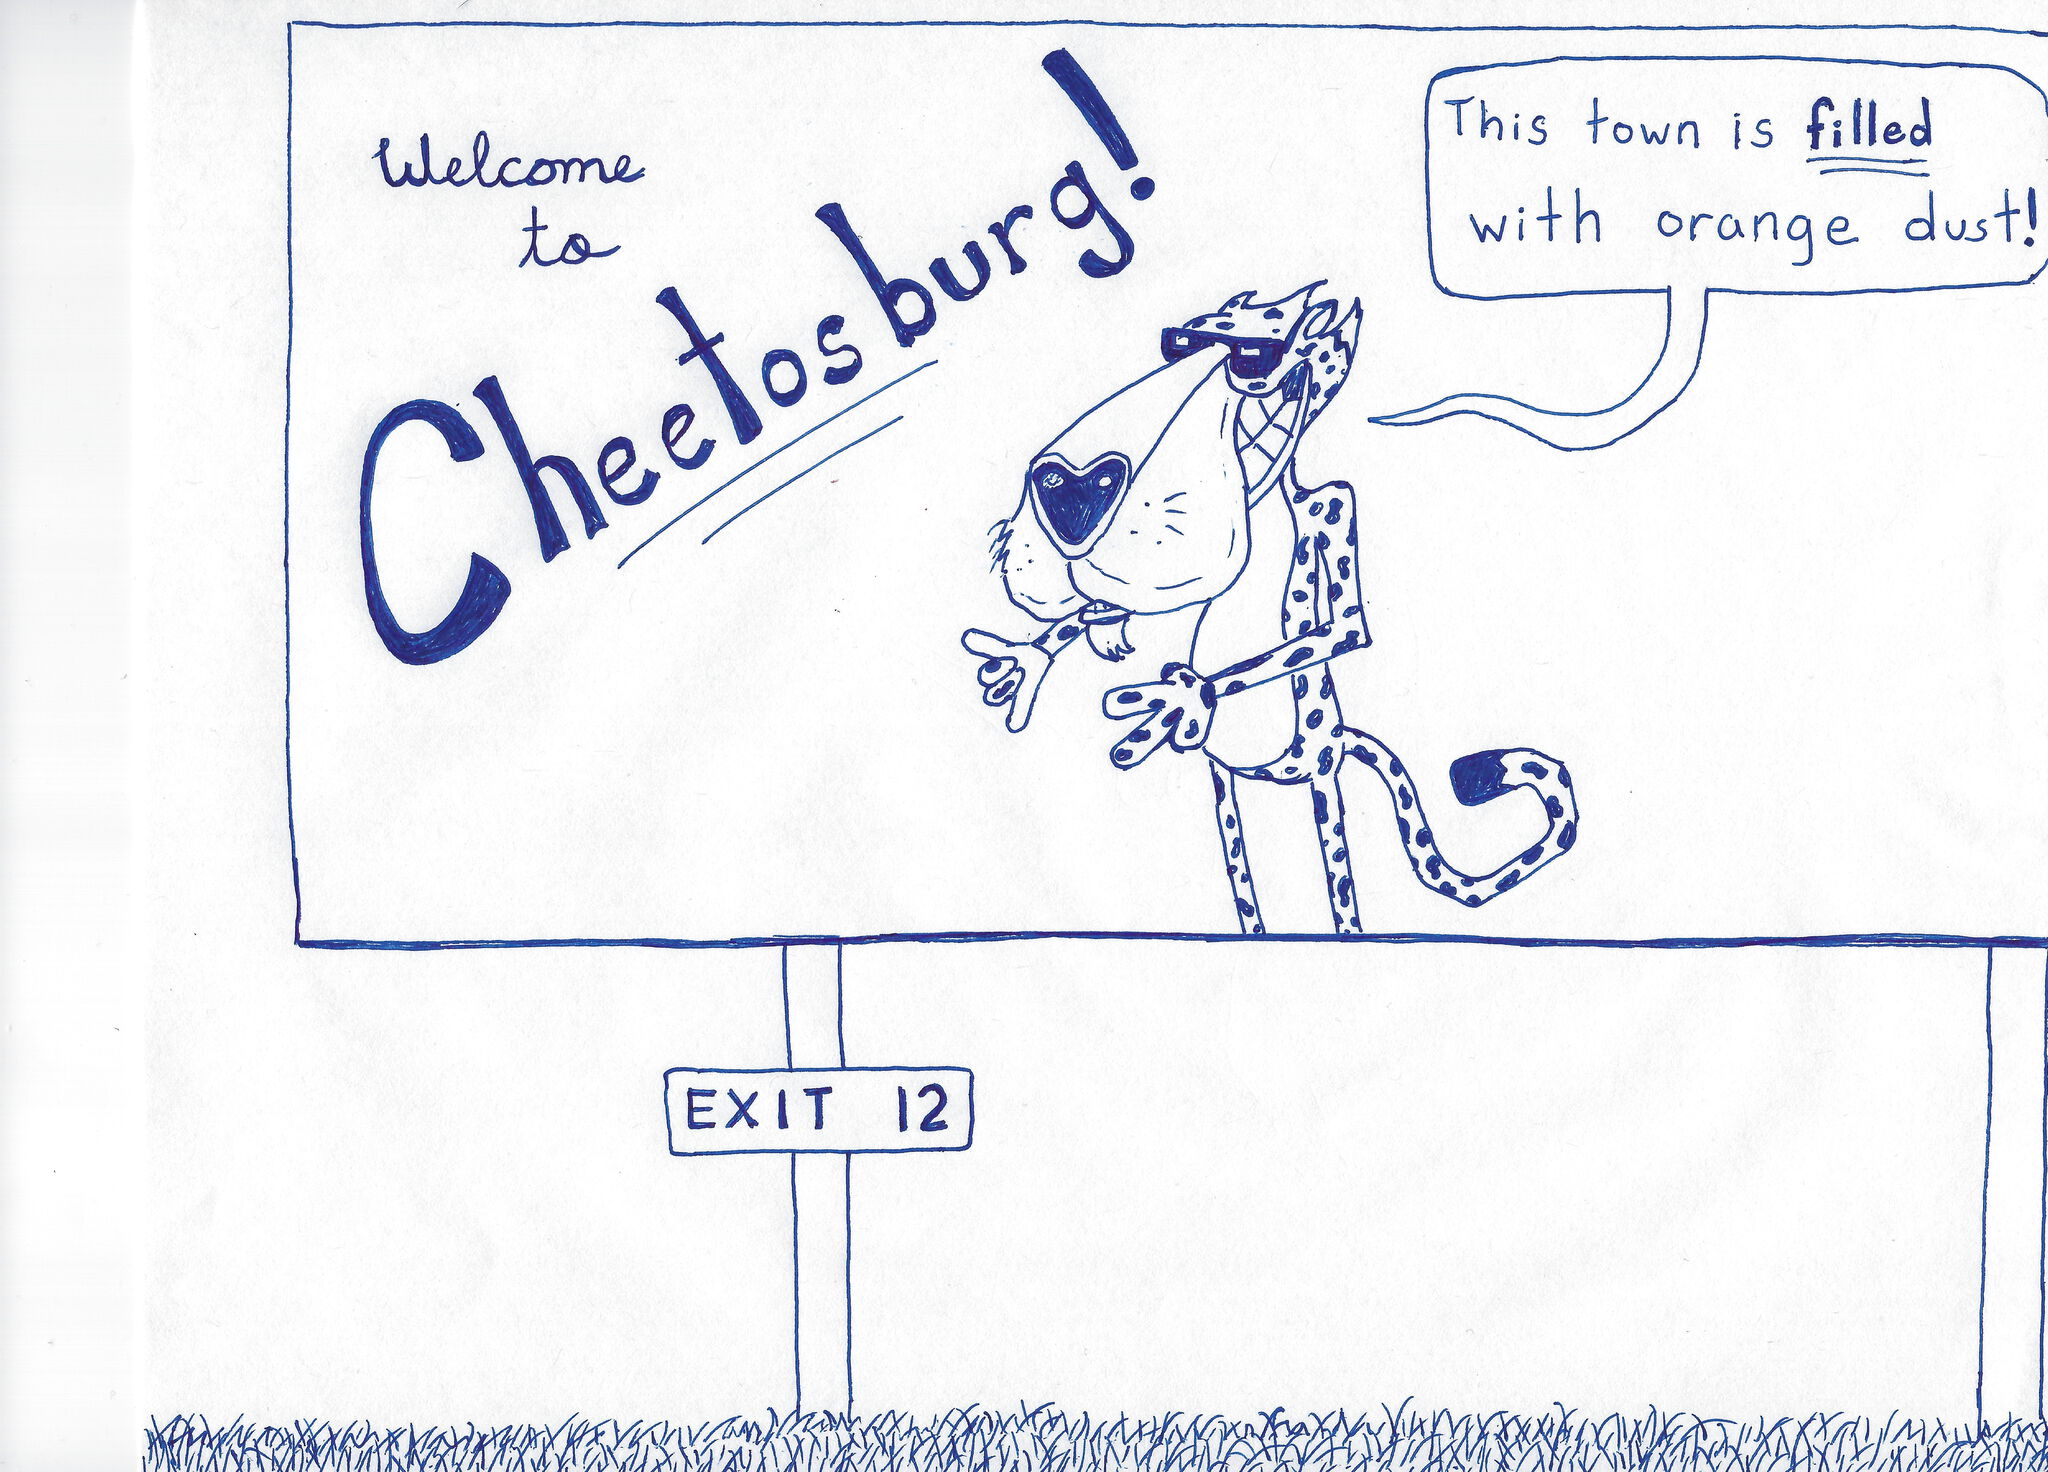 Welcome
to
Cheetosburg!
This town is filled
with orange dust!
EXIT 12